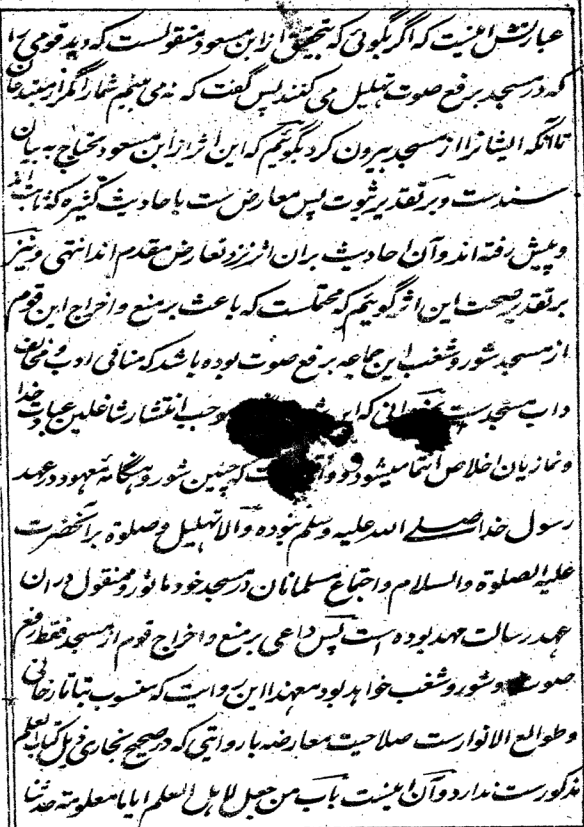 عبارتش اینست که اگر بگوئی که بتحقیق از ابن مسعود منقولست که دید قومی را
که در مسجد برفع صوت تهلیل می کنند پس گفت که نه می بینم شمارا مگر از مبتدعان
تا آنکه ایشانرا از مسجد بیرون کرد بگوئیم که این اثر از ابن مسعود محتاج به بیان
سندست و بر تقدیر ثبوت پس معارض ست باحادیث کثیره که ثابت اند
و پیش رفته اند و آن احادیث بران اثر نزد تعارض مقدم اند انتهی و نیز
بر تقدیر صحت این اثر گوییم که محتملست که باعث بر منع و اخراج این قوم
از مسجد شور و شغب این جماعه برفع صوت بوده باشد که منافی ادب و مخالف
داب مسجدست که این موجب انتشار شاغلین عبادت خدا
و نمازیان اخلاص انتما میشود و که چنین شور و هنگامه معهود در عهد
رسول خدا صلے الله علیه وسلم نبوده والا تهلیل و صلوة بر آنحضرت
علیه الصلوة والسلام و اجتماع مسلمانان در مسجد خود ماثور و منقول در ان
عهد رسالت مهد بوده است پس داعی بر منع و اخراج قوم از مسجد فقط رفع
صوت و شور و شغب خواهد بود معهذا این روایت که منسوب بتاتارخانی
و طوالع الانوارست صلاحیت معارضه با روایتی که در صحیح بخاری ذیل کتاب العلم
مذکورست ندارد و آن اینست باب من جعل لاهل العلم ایاما معلومة حدثنا